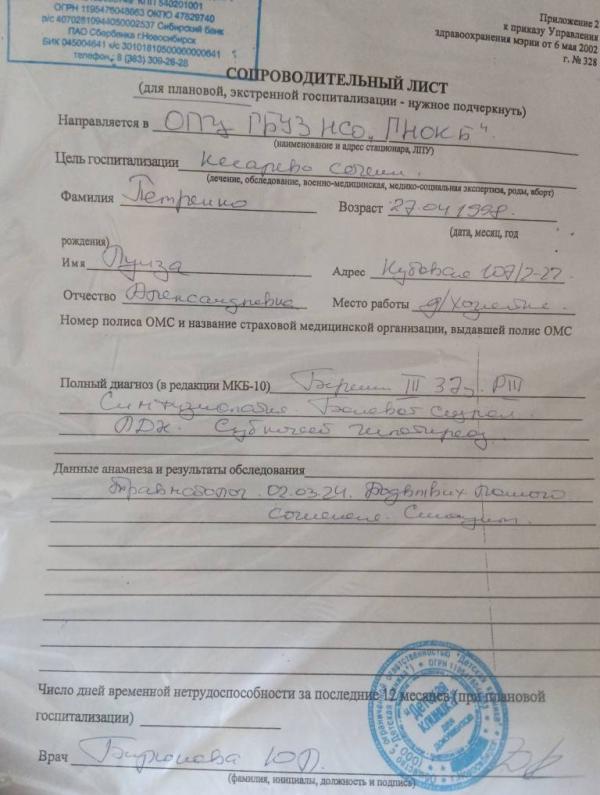 КПП 540201001
ОГРН 1195476048663 ОКПО 47829740
р/с 40702810944050002537 Сибирский банк
ПАО Сбербанка г.Новосибирск
БИК 045004641 к/с 30101810500000000641
телефон, 8 (383) 309-28-28
Приложение 2
к приказу Управления
здравоохранения мэрии от 6 мая 2002
г. № 328
СОПРОВОДИТЕЛЬНЫЙ ЛИСТ
(для плановой, экстренной госпитализации - нужное подчеркнуть)
Направляется в ОПЦ ГБУЗ НСО "ГНОКБ"
(наименование и адрес стационара, ЛПУ)
Цель госпитализации Кесарево сечение
(лечение, обследование, военно-медицинская, медико-социальная экспертиза, роды, аборт)
Фамилия Петренко Возраст 27.04.1998.
(дата, месяц, год
рождения)
Имя Луиза Адрес Кубовая 107/2-22
Отчество Александровна Место работы д/хозяйка.
Номер полиса ОМС и название страховой медицинской организации, выдавшей полис ОМС
Полный диагноз (в редакции МКБ-10) Берем III 37
Симфизиопатия. Болевой синдром.
Субклинич гипотиреоз.
Данные анамнеза и результаты обследования
Травматолог 02.03.24.
Число дней временной нетрудоспособности за последние 12 месяцев (при плановой
госпитализации)
Врач Ю.
(фамилия, инициалы, должность и подпись)